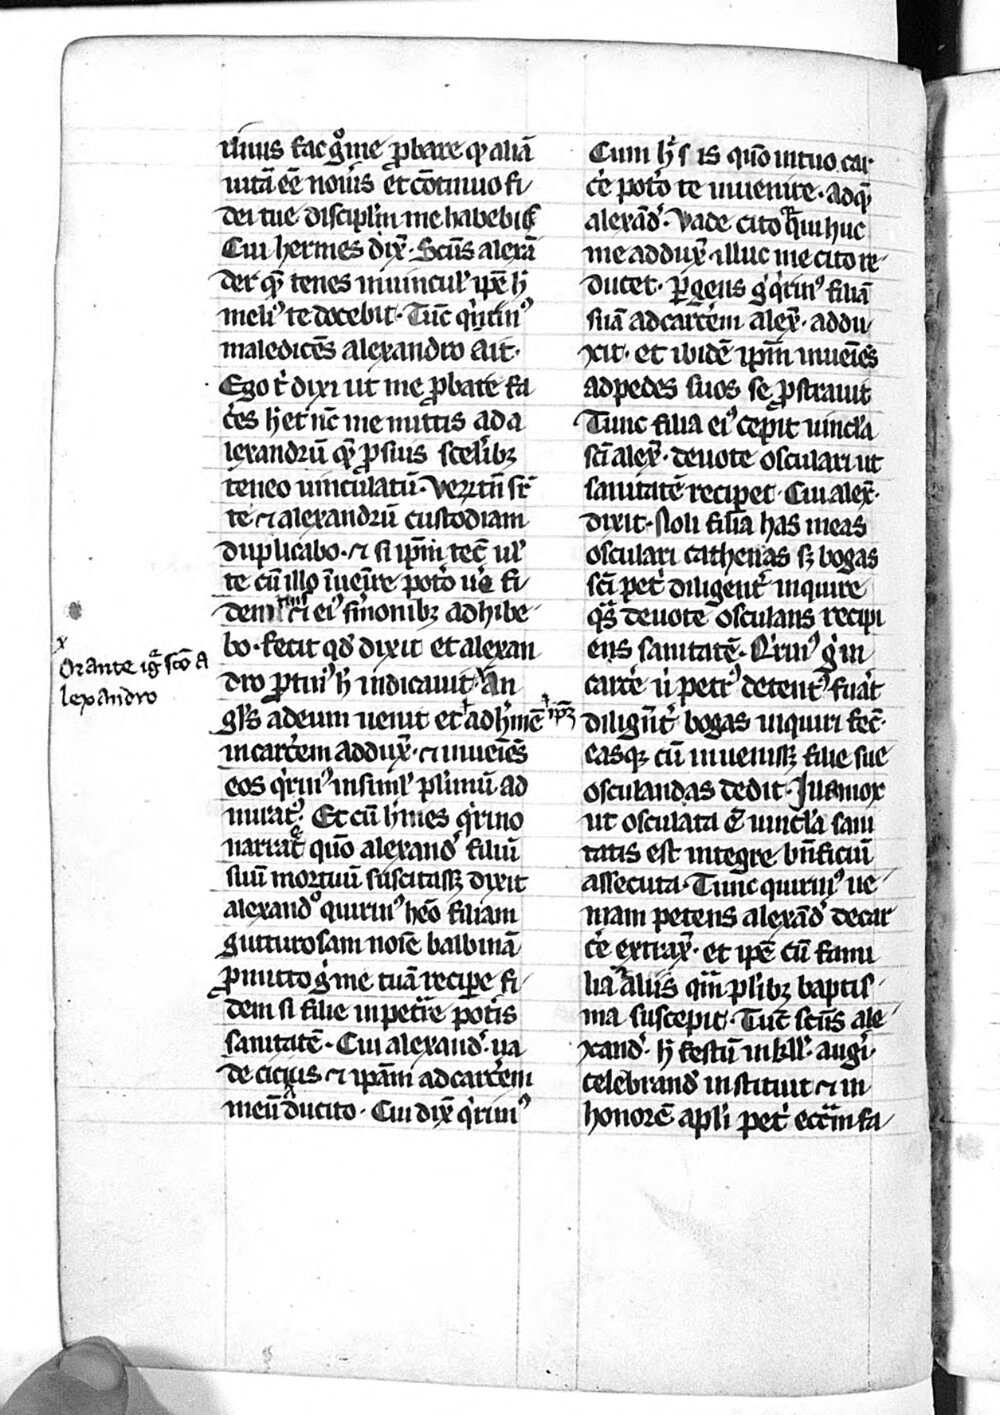 rinus fac gͦ me ꝓbare ꝙ aliā
uitā eē nouis et cōtinuo fi-
dei tue disciplin me habebis
Cui hermes dix̄. Sc̄us alexā
der quē tenes in uincul' ip̄e h'
meli' te docebit. Tūc q'rin'
maledicēs alexandro ait.
Ego t' dixi ut me ꝓbare fa
c'es het nc̄ me mittis ad a
lexandrū quē ꝓ suis scel'ibꝫ
teneo uinculatū. Ueꝝtn̄ sr̄
te et alexandrū custodiam
duplicabo. et si ip̄m tec̄ uł
te cū illo īuen̄ire pot'o u'e fi-
dem tuis et ei' s'monibꝫ adhibe-
bo. fecit qd' dixit et alexan
dro ꝓtin' h' indicauit. An
gl's ad eum uenit et ad h'mē ip̄ꝫ
in carc'em addux̄. et inueīes
eos q'rin' insimł plimū ad
mirat'. Et cū h'mes q'rino
narrat' quō alexand' filiū
suū mortuū suscitassꝫ dixit
alexandͦ quirin' heō filiam
gutturosam noīe balbinā
ꝓmitto gͦ me tuā recipe fi-
dem si filie inpet're pot'is
sanitatē. Cui alexand'. ua
de citius et ip̄am ad carc'em
meū ducito. Cui dix̄ q'rin'
x
Orante igͣ sc̄o a
lexandro
Cum h' s is quō in tuo car
c'e pot'o te inuenire. ad quē
alexād'. Uade cito qͣ qui huc
me addux̄ illuc me cito re-
ducet. ꝑgens g' q'rin' filiā
suā ad carc'em alex̄. addu-
xit. et ibidē ip̄m inueīes
ad pedes suos se ꝓstrauit
Tunc filia ei' cepit uincl'a
sc̄i alex̄. deuote osculari ut
sanitatē recipet. Cui alex̄.
dixit. Noli filia has meas
osculari cathenas sꝫ bogas
sc̄i pet' diligent' inquire
qͣs deuote osculans recipi
ens sanitatē. Q'rin' g' in
carc'e u' petr' detent' fuāt
diliḡnt' bogas inquiri fec̄.
easqꝫ cū inuenissꝫ filie sue
osculandas dedit. Iua mox
ut osculata ē uincl'a sani
tatis est integre bn̄ficiū
assecuta. Tunc quirin' ue-
niam petens alexād' de car
c'e extrax̄. et ip̄e cū fami
lia aliis qͣm plibꝫ baptis-
ma suscepit. Tūc sc̄us ale-
xand'. h' festū in kł. aug'i.
celebrand' instituit et in
honorē apl'i pet' ecc̄iam fa-